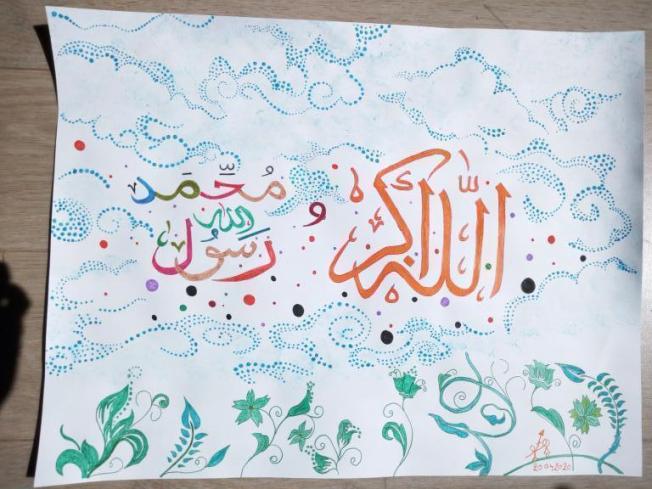 الله اكبر
و
مُحَمَّد
رَسُول الله
20.04.2020